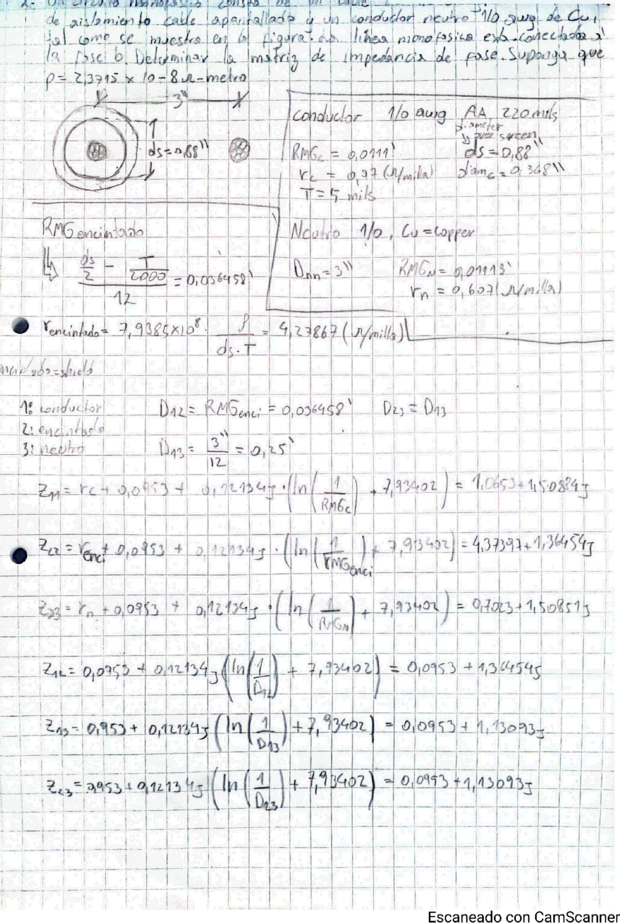 2.- Un circuito monofasico consta de un cable
de aislamiento cable apantallado y un conductor neutro 1/0 awg de Cu,
tal como se muestra en la figura. La línea monofasica esta conectada a
la fase b. Determinar la matriz de impedancia de fase. Suponga que
ρ = 2,3715 x 10-8 Ω-metro
3"
ds=0,88"
conductor 1/0 awg AA 220 mils
diameter over screen
RMGc = 0,0111' ds = 0,88"
rc = 0,97 (Ω/milla) diamc = 0,368"
T = 5 mils
Neutro 1/0, Cu = copper
Dnn = 3" RMGN = 0,01113'
rn = 0,607 (Ω/milla)
RMG encintado
ds/2 - T/2000 / 12 = 0,036458'
rencintado = 7,9385x10⁸ · ρ/ds·T = 4,27867 (Ω/milla)
encintado=shield
1: conductor D12 = RMGenci = 0,036458' D23 = D13
2: encintado
3: neutro D13 = 3"/12 = 0,25'
Z11 = rc + 0,0953 + 0,12134j · (ln(1/RMGc) + 7,93402) = 1,0653 + 1,50884j
Z22 = renci + 0,0953 + 0,12134j · (ln(1/RMGenci) + 7,93402) = 4,37397 + 1,36454j
Z33 = rn + 0,0953 + 0,12134j · (ln(1/RMGN) + 7,93402) = 0,7023 + 1,50851j
Z12 = 0,0953 + 0,12134j (ln(1/D12) + 7,93402) = 0,0953 + 1,36454j
Z13 = 0,953 + 0,12134j (ln(1/D13) + 7,93402) = 0,0953 + 1,13093j
Z23 = 0,953 + 0,12134j (ln(1/D23) + 7,93402) = 0,0953 + 1,13093j
Escaneado con CamScanner